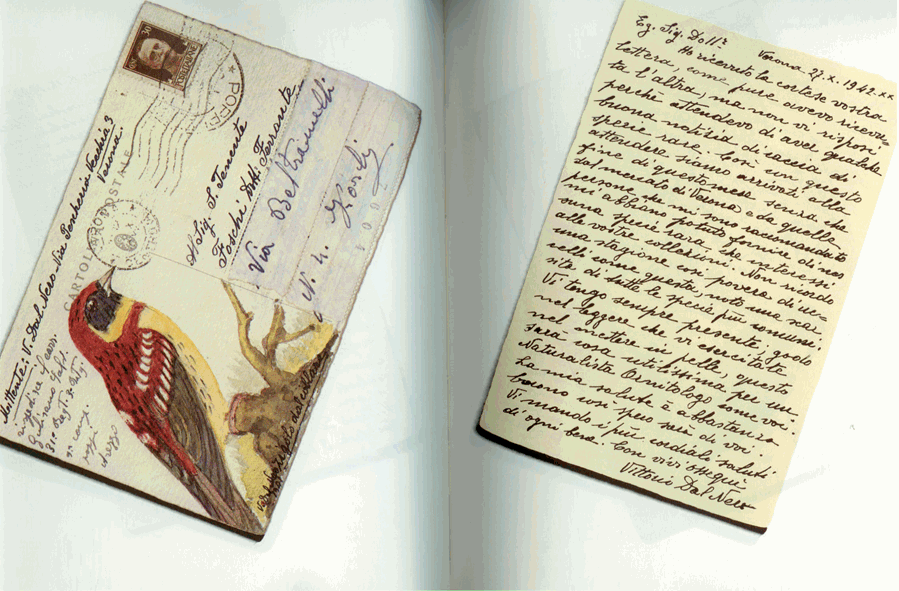 30
POSTE ITALIANE
POSTA
CARTOLINA POSTALE
Mittente: V. Dal Nero Via Peschiera Vecchia 3
Verona.
Al Sig. S. Tenente
Foschi Dott. Ferrante
Via Beltramelli
N. 4. Forlì
Eg. Sig. Dott.
Verona 27. X. 1942. XX
Ho ricevuto la cortese vostra
lettera, come pure avevo ricevu-
ta l'altra, ma non vi risposi
perché attendevo di aver qualche
buona notizia di caccia di
specie rare. Così un questo
attendere siamo arrivati alla
fine di questo mese senza che
dal mercato di Verona e da quelle
persone che mi sono raccomandato
mi abbiano potuto fornire di nes
suna specie rara che interessi
alle vostre collezioni. Non ricordo
una stagione così povera di uc-
celli come questa, noto una scar
sità di tutte le specie più comune.
Vi tengo sempre presente, godo
nel leggere che vi esercitate
nel mettere in pelle, questo
sarà cosa utilissima per un
Naturalista Ornitologo come voi.
La mia salute è abbastanza
buona così spero sarà di voi.
Vi mando i più cordiali saluti
d'ogni bene. Con vivi ossequi
Vittorio Dal Nero